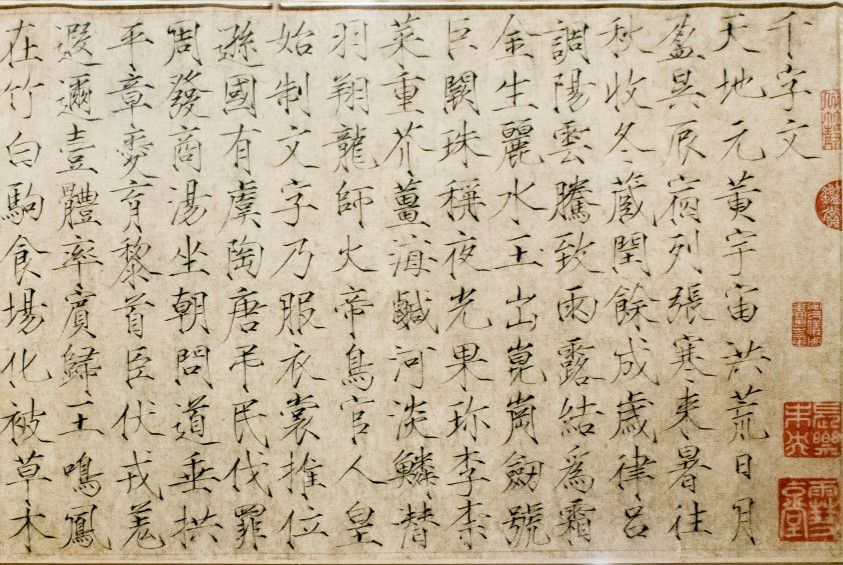 千字文
天地元黃宇宙洪荒日月
盈昃辰宿列張寒来暑往
秋收冬蔵閏餘成歲律呂
調陽雲騰致雨露結為霜
金生麗水玉出崑崗劒號
巨闕珠稱夜光果珎李柰
菜重芥薑海鹹河淡鱗潛
羽翔龍師火帝鳥官人皇
始制文字乃服衣裳推位
遜國有虞陶唐弔民伐罪
周發商湯坐朝問道垂拱
平章愛育黎首臣伏戎羌
遐邇壹體率賓歸王鳴鳳
在竹白駒食場化被草木